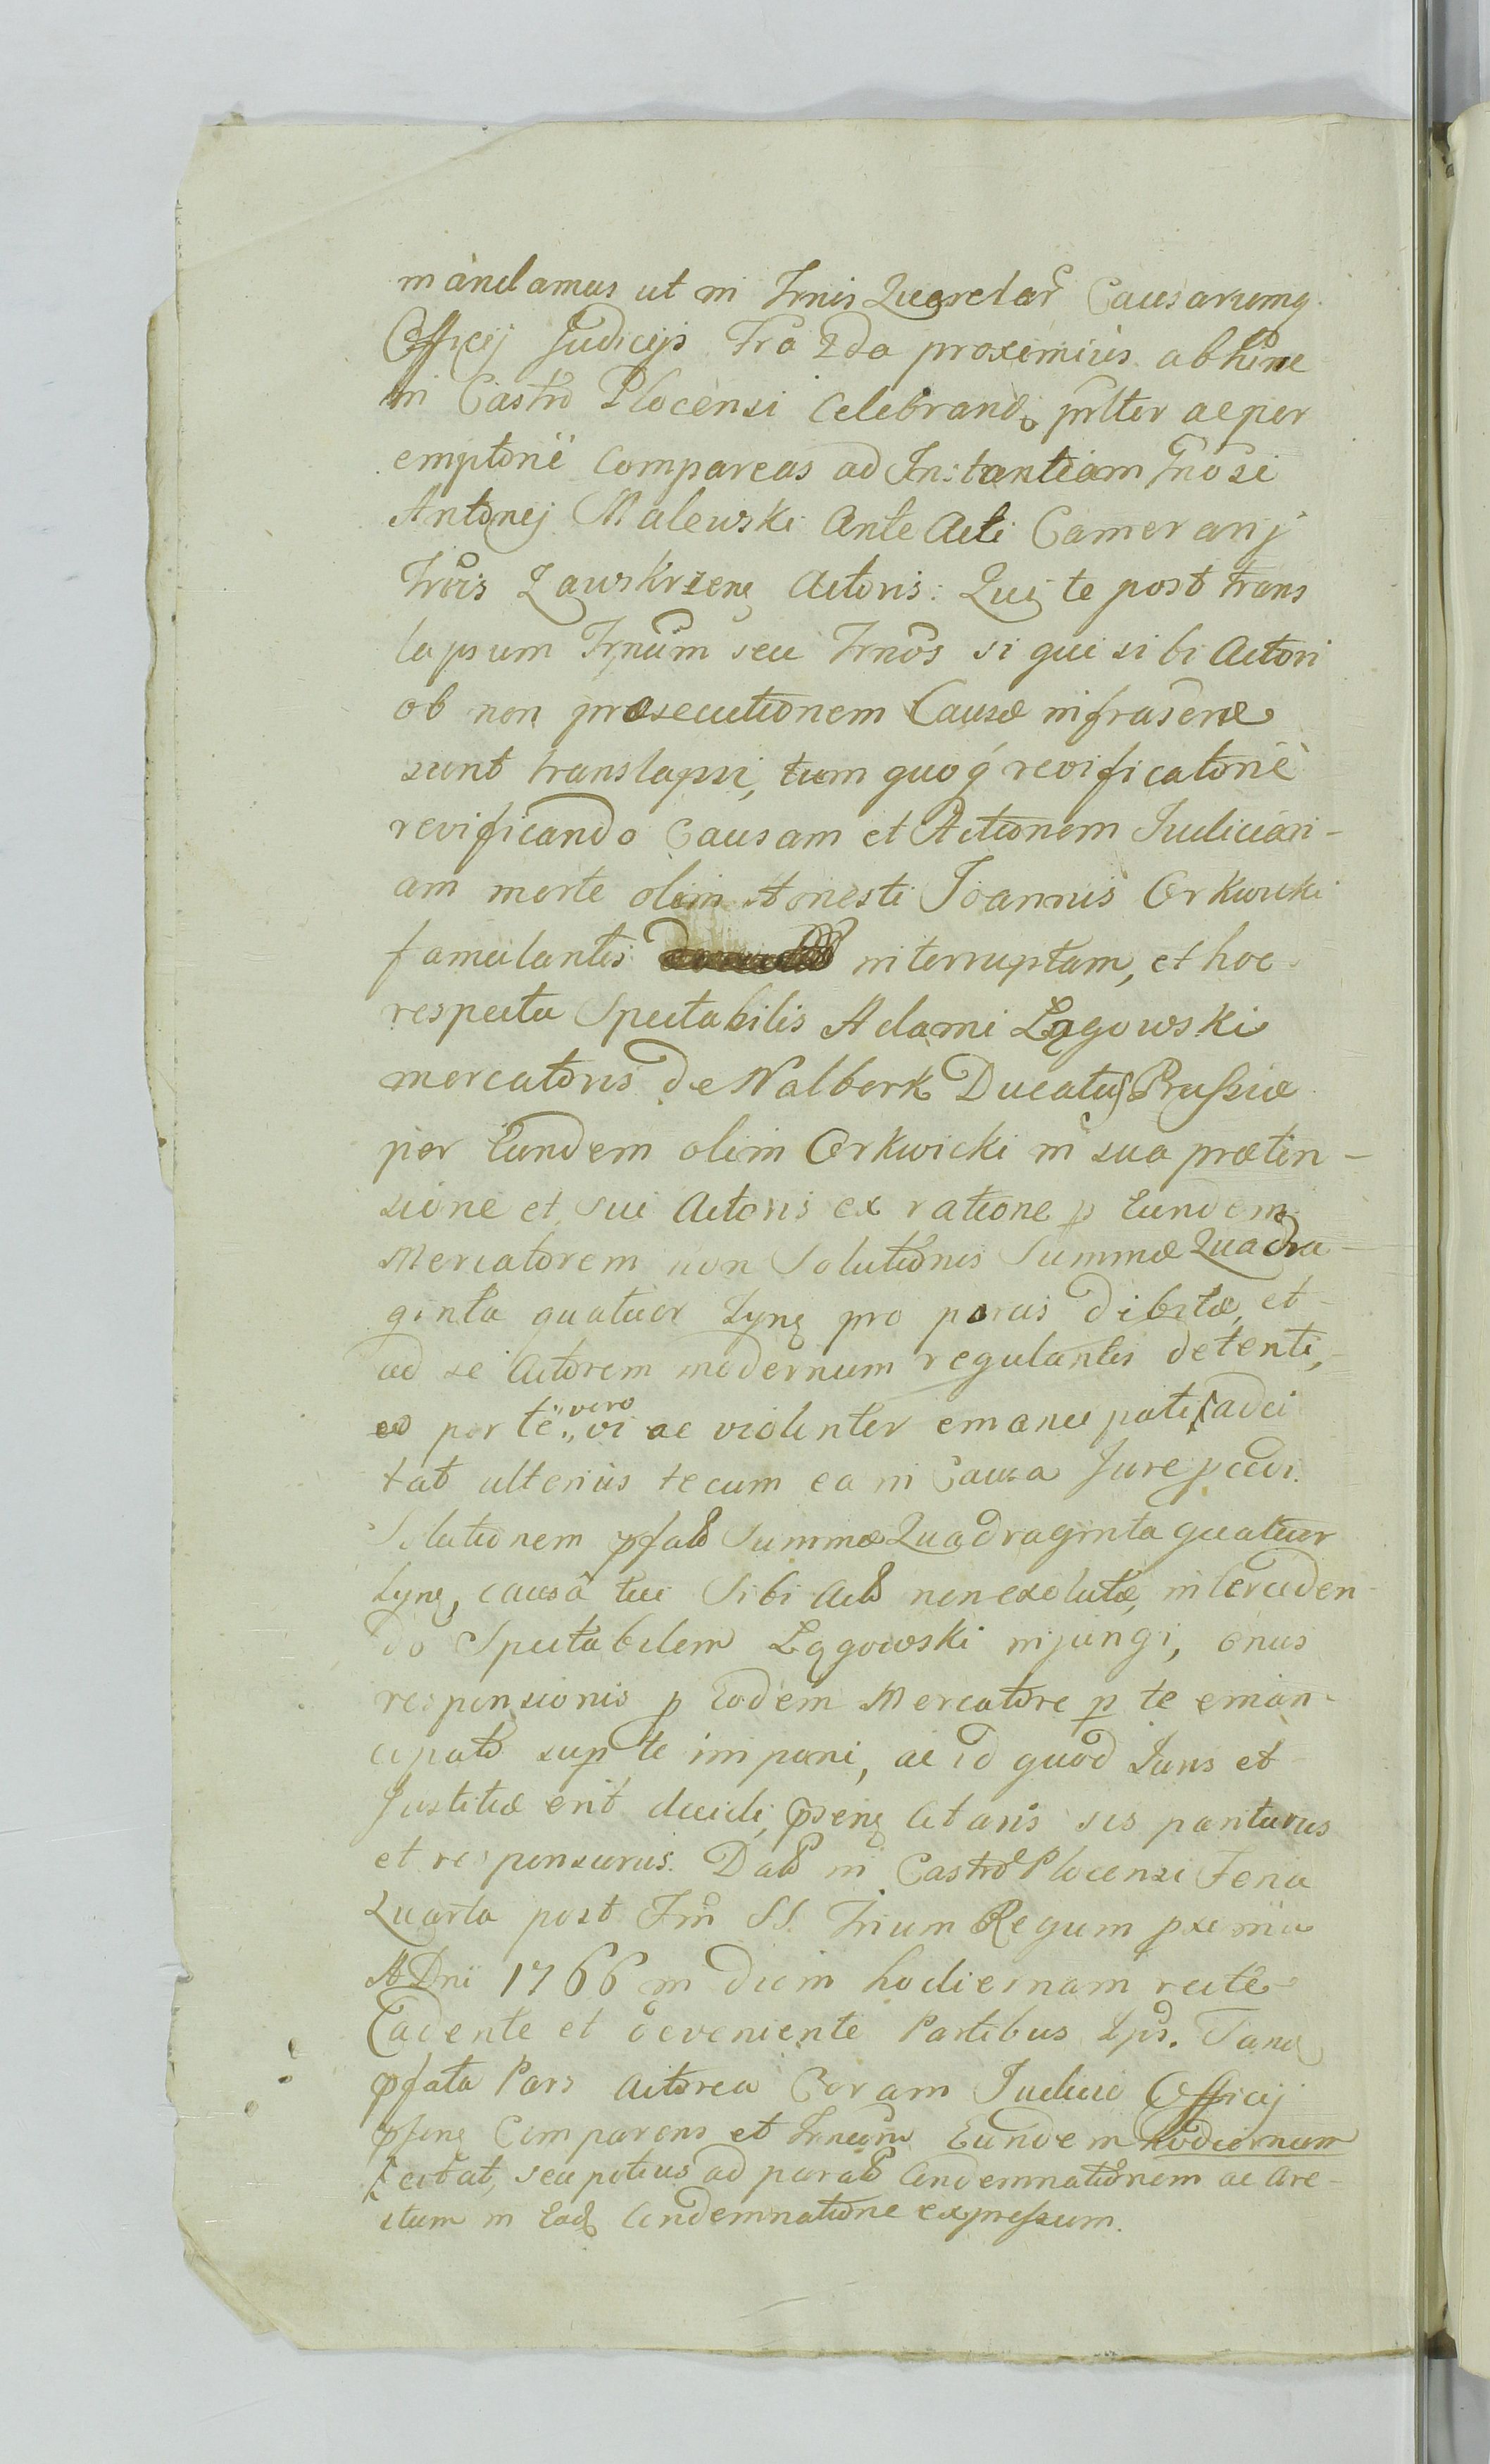 mandamus ut in Trnis Querelar Causarumq
Officij Judicijs Fra 2da proximius abhinc
in Castro Plocensi Celebrand, prlter ac per
emptorie Compareas ad Instantiam Gnosi
Antonij Malewski Ante Acti Camerarij
Trois Zawskrzen Actoris: Qui te post trans
lapsum Trnum seu Trnos si qui sibi Actori
ob non prosecutionem Causæ infrascræ
sunt translapsi, tum quoq revificatorie
revificando Causam et Actionem Judiciari-
am morte olim Honesti Joannis Orkwicki
famulantis interruptam, et hoc
respectu Spectabilis Adami Łągowski
mercatoris de Malbork Ducatus Prussiæ
per Eundem olim Orkwicki in sua præten-
sione et sui Actoris ex ratione p Eundem
Mercatorem non Solutionis Summæ Quadra-
ginta quatuor Tynf pro porcis debitæ, et
ad se Actorem modernum regulantis detenti,
eo per te "vero vi ac violenter emancipati, adci
tat ulterius tecum ea in Causa Jure pcedi.
Solutionem pfatæ Summæ Quadraginta quatuor
Tynf, causâ tui Sibi Acto non exolutæ, interceden-
do Spectabilem Łągowski injungi, onus
responsionis p Eodem Mercatore p te eman-
cipato sup te imponi, ac id quod Juris et
Justitiæ erit decidi, psens Citaris sis pariturus
et responsurus. Dato in Castro Plocensi Feria
Quarta post Fm SS. Trium Regum pxima
A Dni 1766 in diem hodiernam recte
Cadente et deveniente Partibus Ips.
pfata Pars Actorea Coram Judicio Officij
psens Comparens et Trnum Eundem hodiernum
citat, seu potius ad parata Condemnationem ac are-
stum in Ead Condemnatione expressum.